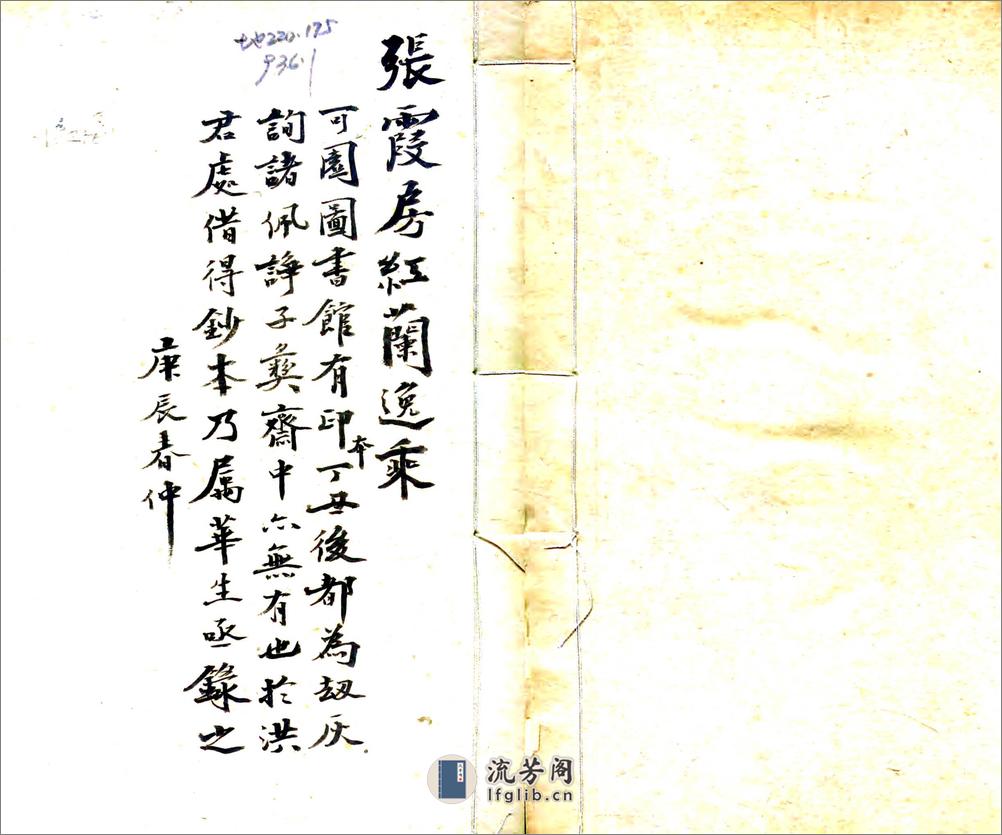 張霞房紅蘭逸乘
可園圖書館有印本丁丑後都為劫灰
詢諸佩諍子彝齋中亦無有也於洪
君處借得鈔本乃屬華生亟錄之
庚辰春仲
地220.175
936.1
流芳阁
lfglib.cn